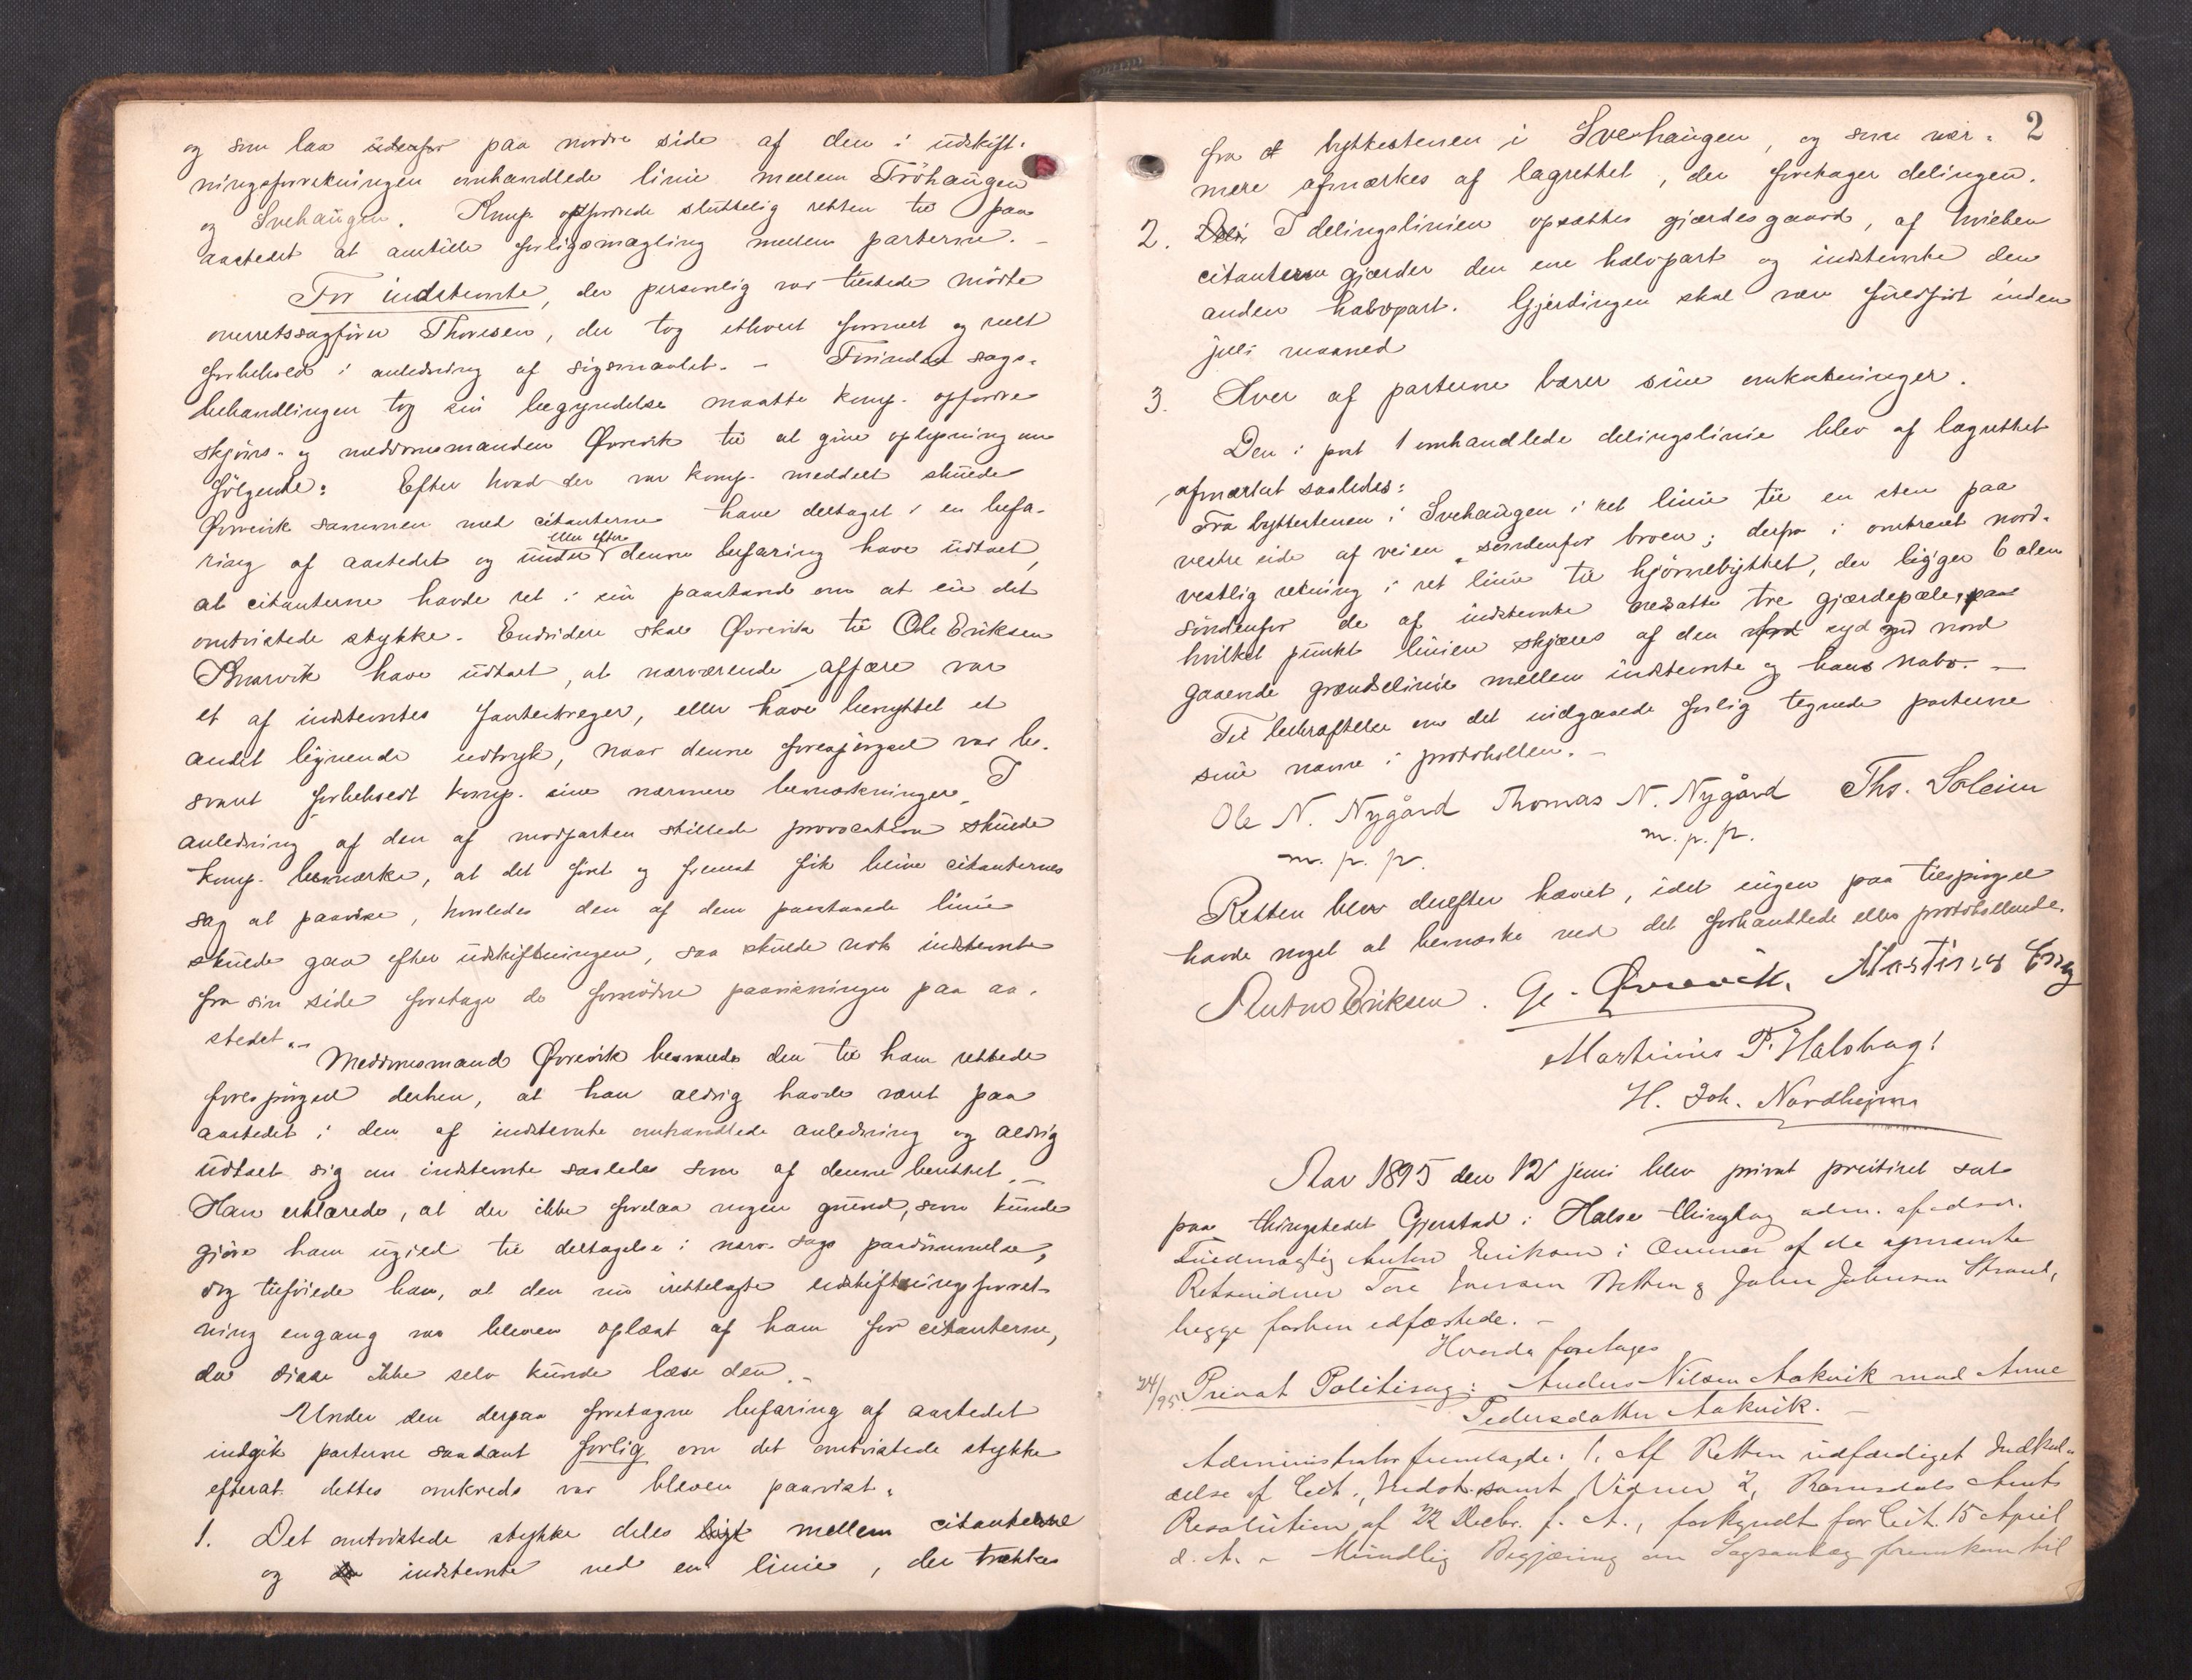 og som laa udenfor paa nordre side af den i udskift-
ningsforretningen omhandlede linie mellem Tröhaugen
og Svehaugen. Komp. opfordrede sluttelig retten til paa
aastedet at anstille forligsmægling mellem parterne. -
For indstevnte, der personlig var tilstede mödte
overretssagförer Thoresen, der tog ethvert formelt og reelt
forbehold i anledning af sigsmaalet. - Forinden sags-
behandlingen tog sin begyndelse maatte komp. opfordre
skjöns- og meddomsmanden Qvrevik til at give oplysning om
fölgende: Efter hvad der var komp. meddelt skulde
Qvrevik sammen med citanterne have deltaget i en befa-
eller efter
ring af aastedet og under denne befaring have udtalt,
at citanterne havde ret i sin paastand om at eie det
omtvistede stykke. Endvidere skal Qvrevik til Ole Eriksen
have udtalt, at nærværende affære var
et af indstevntes fantestreger, eller have benyttet et
andet lignende udtryk, naar denne forespörgsel var be-
svaret forbeholdt komp. sine nærmere bemærkninger. I
anledning af den af modparten stillede provocation skulde
komp. bemærke, at det först og fremst fik blive citanternes
sag at paavise, hvorledes den af dem paastaaede linie
skulde gaa efter udskiftningen, saa skulde nok indstevnte
fra sin side foretage de fornödne paavisninger paa aa-
stedet. -
Meddomsmand Qvrevik besvarede den til ham rettede
forespörgsel derhen, at han aldrig havde været paa
aastedet i den af indstevnte omhandlede anledning og aldrig
udtalt sig om indstevnte saaledes som af denne berettet. -
Han erklærede, at der ikke forelaa nogen grund, som kunde
gjöre ham ugild til deltagelse i nærv. sags paadömmelse,
dog tilföiede han, at den nu irettelagte udskiftningsforret-
ning engang var bleven oplæst af ham for citanterne,
da disse ikke selv kunde læse den. -
Under den derpaa foretagne befaring af aastedet
indgik parterne saadant forlig om det omtvistede stykke
efterat dettes omkreds var bleven paavist.
1. Det omtvistede stykke deles ligt mellem citanterne
og indstevnte ved en linie, der trækkes
2
fra byttestenen i Svehaugen, og som nær-
mere afmærkes af lagrettet, der foretager delingen.
2. I delingslinien opsættes gjærdesgaard, af hvilken
citanterne gjærder den ene halvpart og indstevnte den
anden halvpart. Gjerdingen skal være fuldfört inden
juli maaned
3. Hver af parterne bærer sine omkostninger.
Den i post 1 omhandlede delingslinie blev af lagrettet
afmærket saaledes:
Fra byttestenen i Svehaugen i ret linie til en sten paa
vestre side af veien söndenfor broen; derfra i omtrent nord-
vestlig retning i ret linie til hjörnebyttet, der ligger 6 alen
söndenfor de af indstevnte nedsatte tre gjærdepæle, paa
hvilket punkt linien skjæres af den syd nord
gaaende grændselinie mellem indstevnte og hans nabo. -
Til bekræftelse om det indgaaede forlig tegnede parterne
sine navne i protokollen. -
Ole N. Nygård Thomas N. Nygård Ths. Soleim
m. p. p. m. p. p.
Retten blev derefter hævet, idet ingen paa tilspörgsel
havde noget at bemærke ved det forhandlede eller protokollerede.
Anton Eriksen. Qvrevik, Martinus Eng
Martinus P. Halsbag!
H. Joh. Nordhejm
Aar 1895 den 12 juni blev privat politiret sat
paa thingstedet Gjerstad i Halse thinglag adm. af edsv.
Fuldmægtig Anton Eriksen i Overvær af de opnævnte
Retsvidner Tore Iversen Botten og John Johnsen Strand,
begge forhen edfæstede. -
Hvorda foretages
24/95. Privat Politisag: Anders Nilsen Aakvik mod Anne
Pedersdatter Aakvik. -
Administrator fremlagde: 1. Af Retten udfærdiget Indkal-
delse af Cit., Indst. samt Vidner 2, Romsdals Amts
Resolution af 22 Decbr. f. A., forkyndt for Cit. 15 April
d. A. - Mundlig Begjæring om Sagsanlæg fremkom til